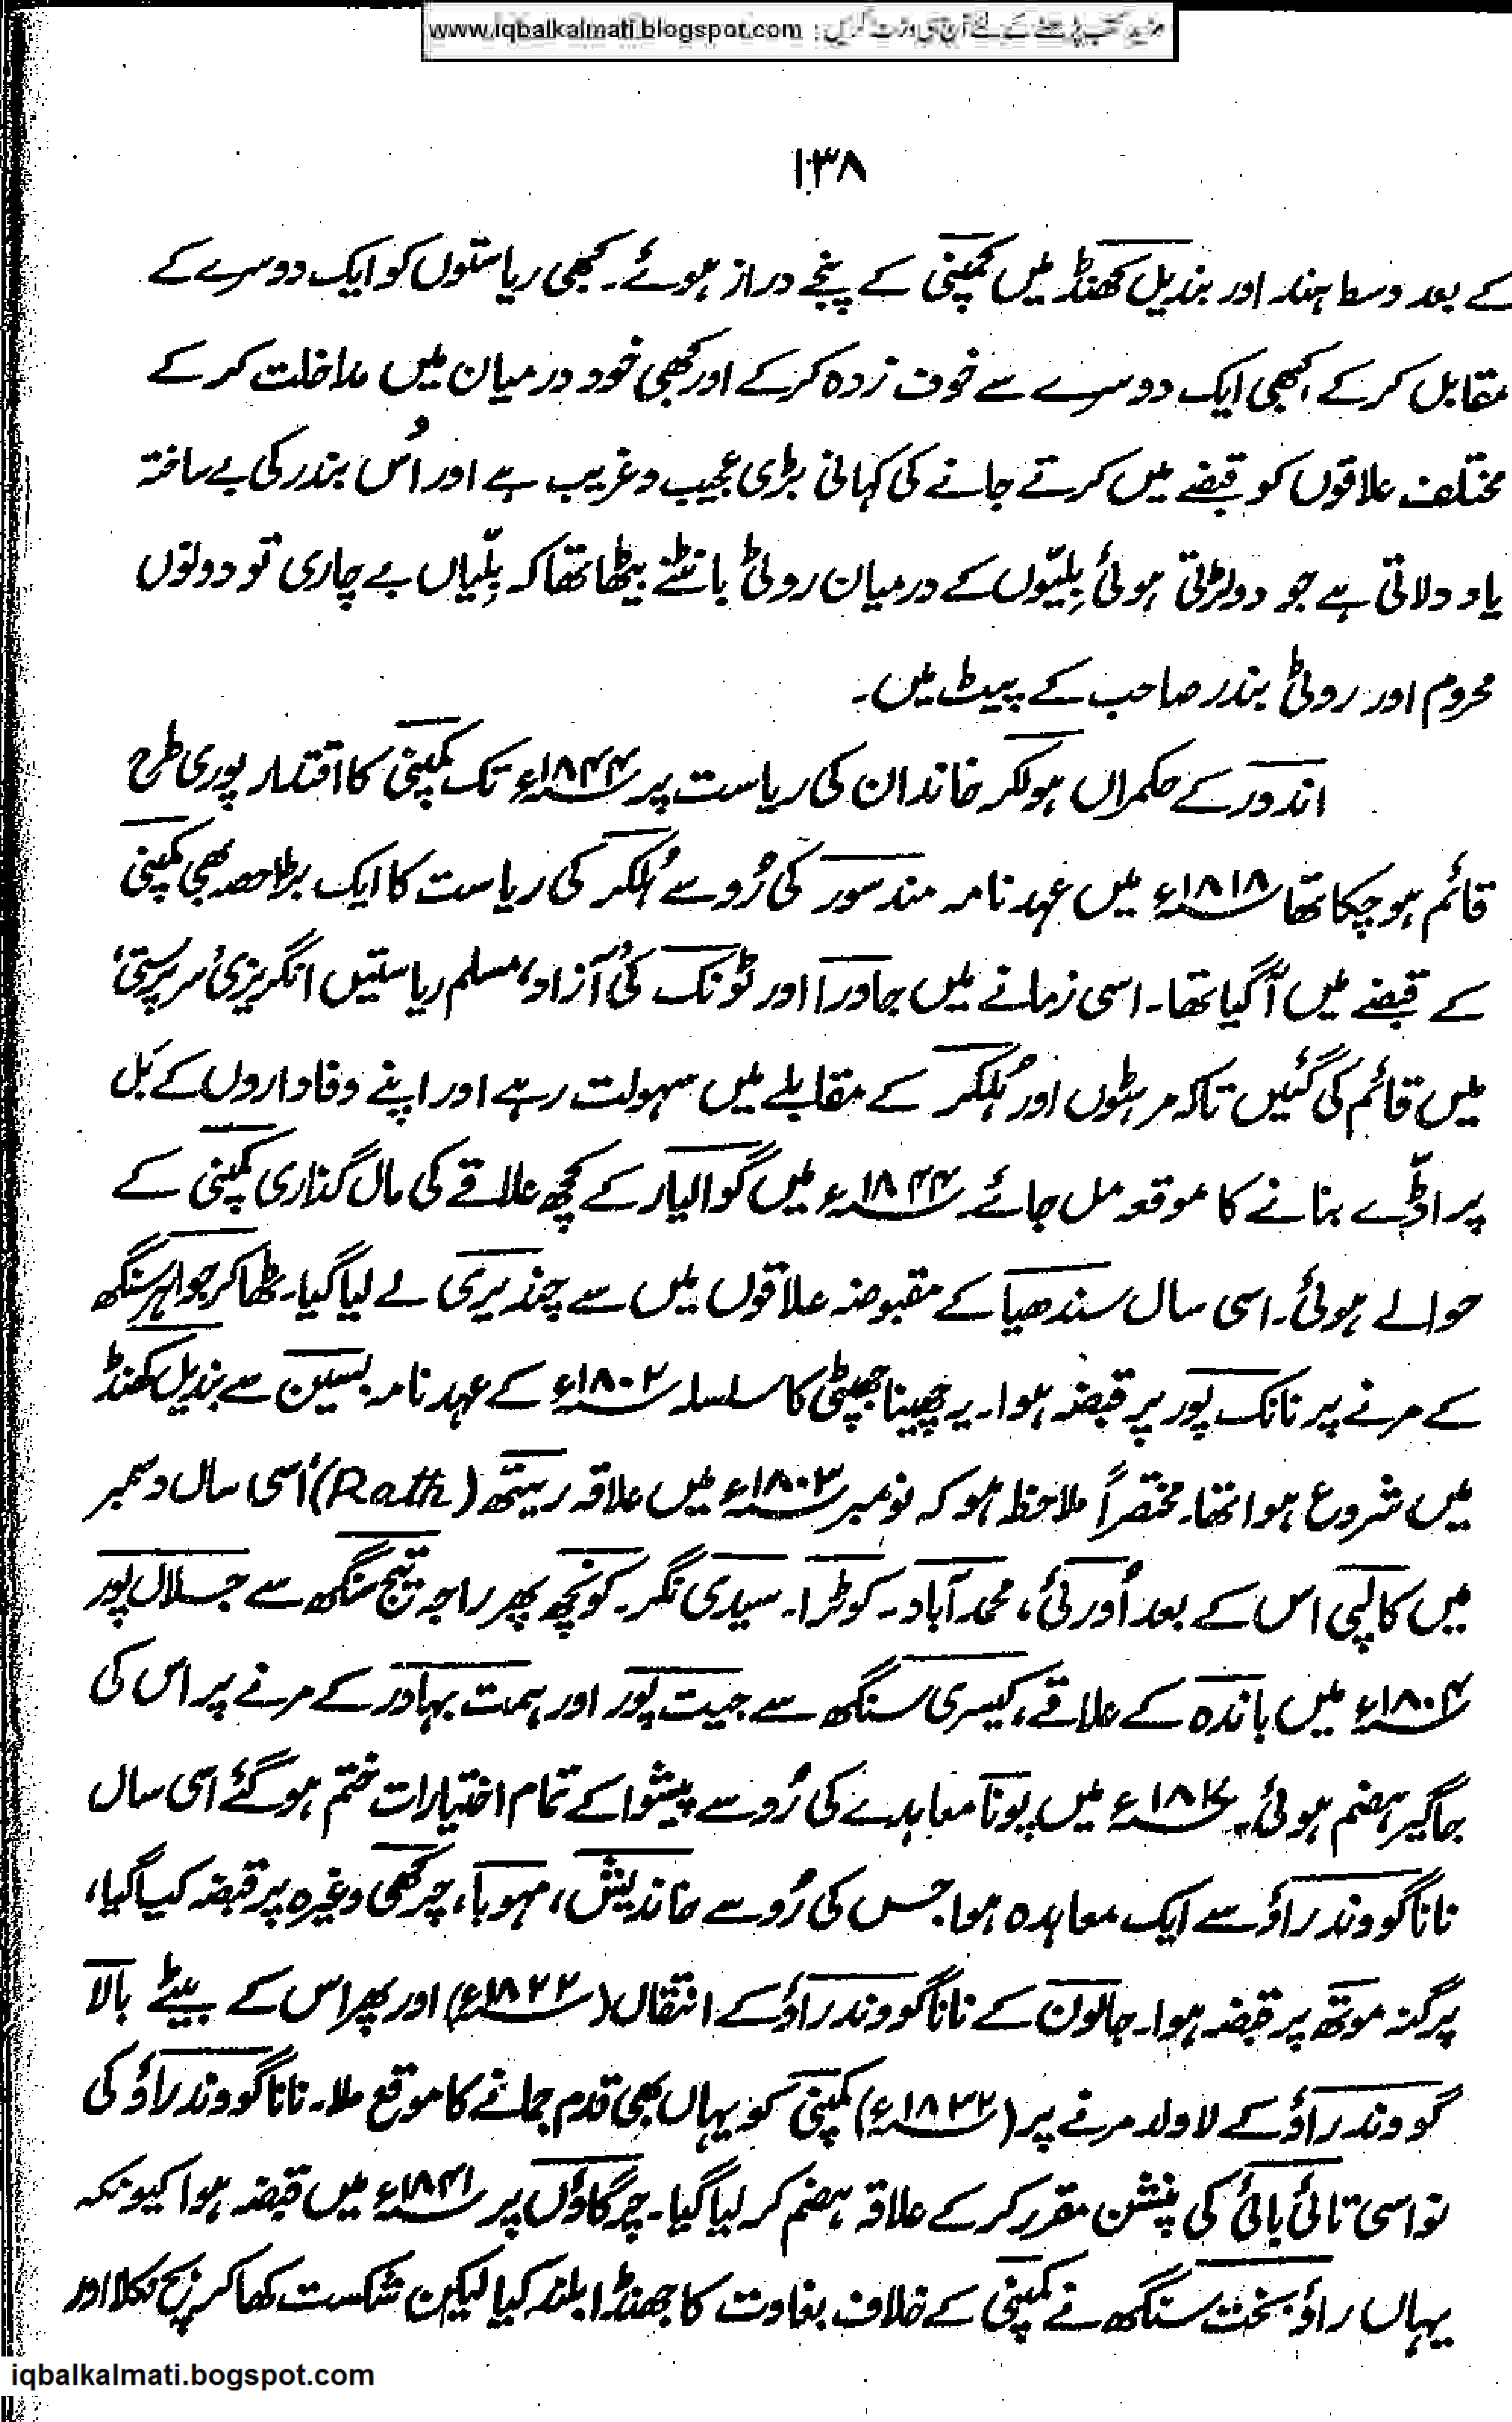 مزید کتب پڑھنے کے لئے آج ہی وزٹ کریں : www.iqbalkalmati.blogspot.com
۱۳۸
کے بعد وسط ہند اور بندیل کھنڈ میں کمپنی کے پنجے دراز ہوئے۔ کبھی ریاستوں کو ایک دوسرے کے
مقابل کر کے، کبھی ایک دوسرے سے خوف زدہ کرکے اور کبھی خود درمیان میں مداخلت کر کے
مختلف علاقوں کو قبضے میں کرتے جانے کی کہانی بڑی عجیب و غریب ہے اور اُس بندر کی بے ساختہ
یاد دلاتی ہے جو دو لڑتی ہوئی بِلیّوں کے درمیان روٹی بانٹنے بیٹھا تھا کہ بِلّیاں بے چاری تو دونوں
محروم اور روٹی بندر صاحب کے پیٹ میں۔
اندور کے حکمراں ہولکر خاندان کی ریاست پر ۱۸۴۴ء تک کمپنی کا اقتدار پوری طرح
قائم ہو چکا تھا ۱۸۱۸ء میں عہد نامہ مندسور کی رُو سے ہُلکر کی ریاست کا ایک بڑا حصہ بھی کمپنی
کے قبضے میں آ گیا تھا۔ اسی زمانے میں جاورا اور ٹونک کی ’آزاد‘ مسلم ریاستیں انگریزی ’سرپرستی‘
میں قائم کی گئیں تاکہ مرہٹوں اور ہُلکر کے مقابلے میں سہولت رہے اور اپنے وفاداروں کے بَل
پر اڈّے بنانے کا موقعہ مل جائے ۱۸۴۴ء میں گوالیار کے کچھ علاقے کی مال گذاری کمپنی کے
حوالے ہوئی۔ اسی سال سندھیا کے مقبوضہ علاقوں میں سے چندیری لے لیا گیا۔ ٹھاکر جواہر سنگھ
کے مرنے پر نانک پور پر قبضہ ہوا۔ یہ چھینا جھپٹی کا سلسلہ ۱۸۰۲ء کے عہد نامہ بسین سے بندیل کھنڈ
میں شروع ہوا تھا۔ مختصراً ملاحظہ ہو کہ نومبر ۱۸۰۳ء میں علاقہ ریتھ (Rath) اُسی سال دسمبر
میں کالپی اس کے بعد اُورئی، محمد آباد۔ کوٹرا۔ سیدی نگر۔ کونچھ پھر راجہ تیج سنگھ سے جلال پور
۱۸۰۴ء میں باندہ کے علاقے، کیسری سنگھ سے جیت پور اور ہمت بہادر کے مرنے پر اس کی
جاگیر ہضم ہوئی۔ ۱۸۱۷ء میں پونا معاہدے کی رُو سے پیشوا کے تمام اختیارات ختم ہو گئے اسی سال
نانا گووند راؤ سے ایک معاہدہ ہوا جس کی رُو سے خاندیش، مہوبا، چرکھی وغیرہ پر قبضہ کیا گیا،
پرگنہ موتھ پر قبضہ ہوا۔ جالون کے نانا گووند راؤ کے انتقال (۱۸۲۲ء) اور پھر اس کے بیٹے بالا
گووند راؤ کے لاولد مرنے پر (۱۸۳۲ء) کمپنی کو یہاں بھی قدم جمانے کا موقع ملا۔ نانا گووند راؤ کی
نواسی تائی بائی کی پنشن مقرر کر کے علاقہ ہضم کر لیا گیا۔ چرگاؤں پر ۱۸۴۱ء میں قبضہ ہوا کیونکہ
یہاں راؤ بخت سنگھ نے کمپنی کے خلاف بغاوت کا جھنڈا بلند کیا لیکن شکست کھا کر بچ نکلا اور
iqbalkalmati.bogspot.com